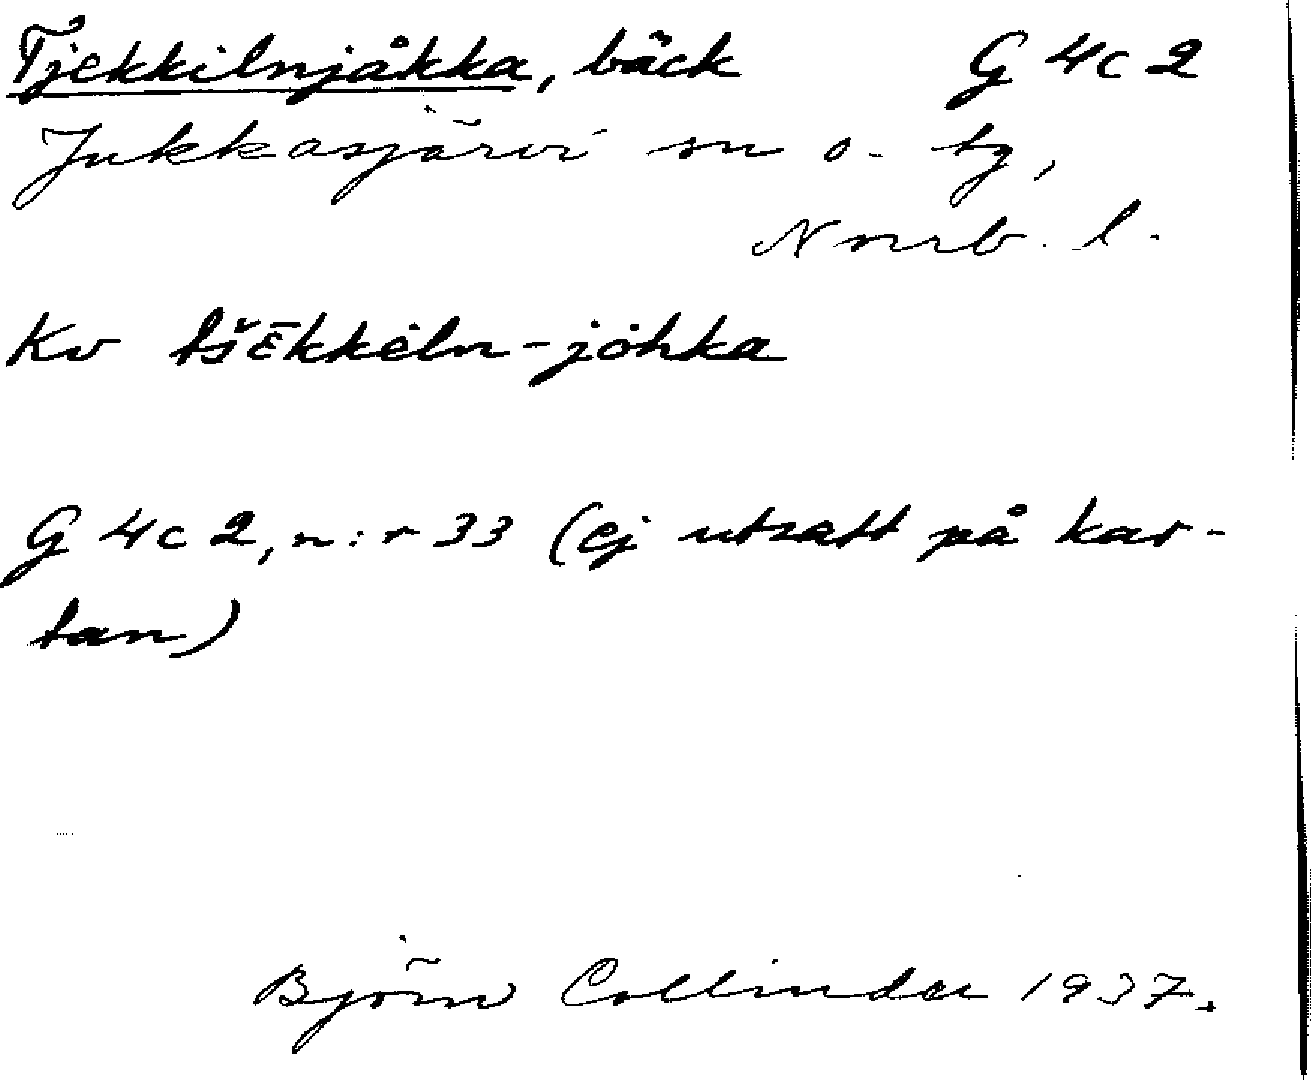 Tjekkilnjåkka, bäck G 4c 2
Jukkasjärvi sn o. tg,
Norrb. l.
Kv tšēkkėln-jȯhka
G 4c 2, n:r 33 (ej utsatt på kar-
tan)
Björn Collinder 1937.